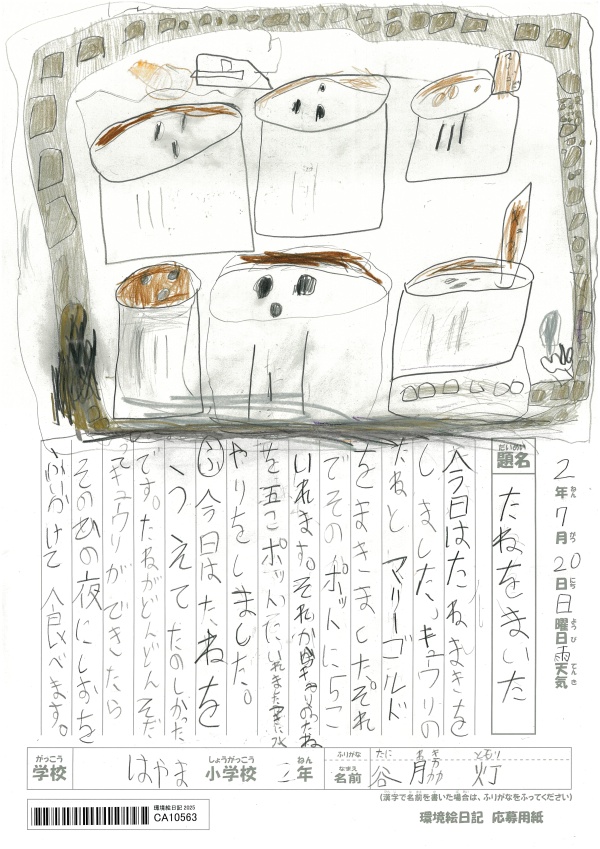 2年7月20日日曜日雨天気
ねん がつ にち ようび てんき
だいめい
題名
たねをまいた
今日はたねまきを
しました。キュウリの
たねと マリーゴルド
をまきました。それ
でそのポットに5こ
いれます。それから
のたね
を五こポットにいれました
やりをしました。
今日はたねを
うえて たのしかった
です。たねがどんどんそだ
キュウリができたら
そのひの夜にしおを
かけて 食べます。
がっこう
学校
はやま
しょうがっこう
小学校
二
ねん
年
ふりがな
なまえ
名前
たに
谷
月
灯
(漢字で名前を書いた場合は、ふりがなをふってください)
環境絵日記 2025
CA10563
環境絵日記 応募用紙